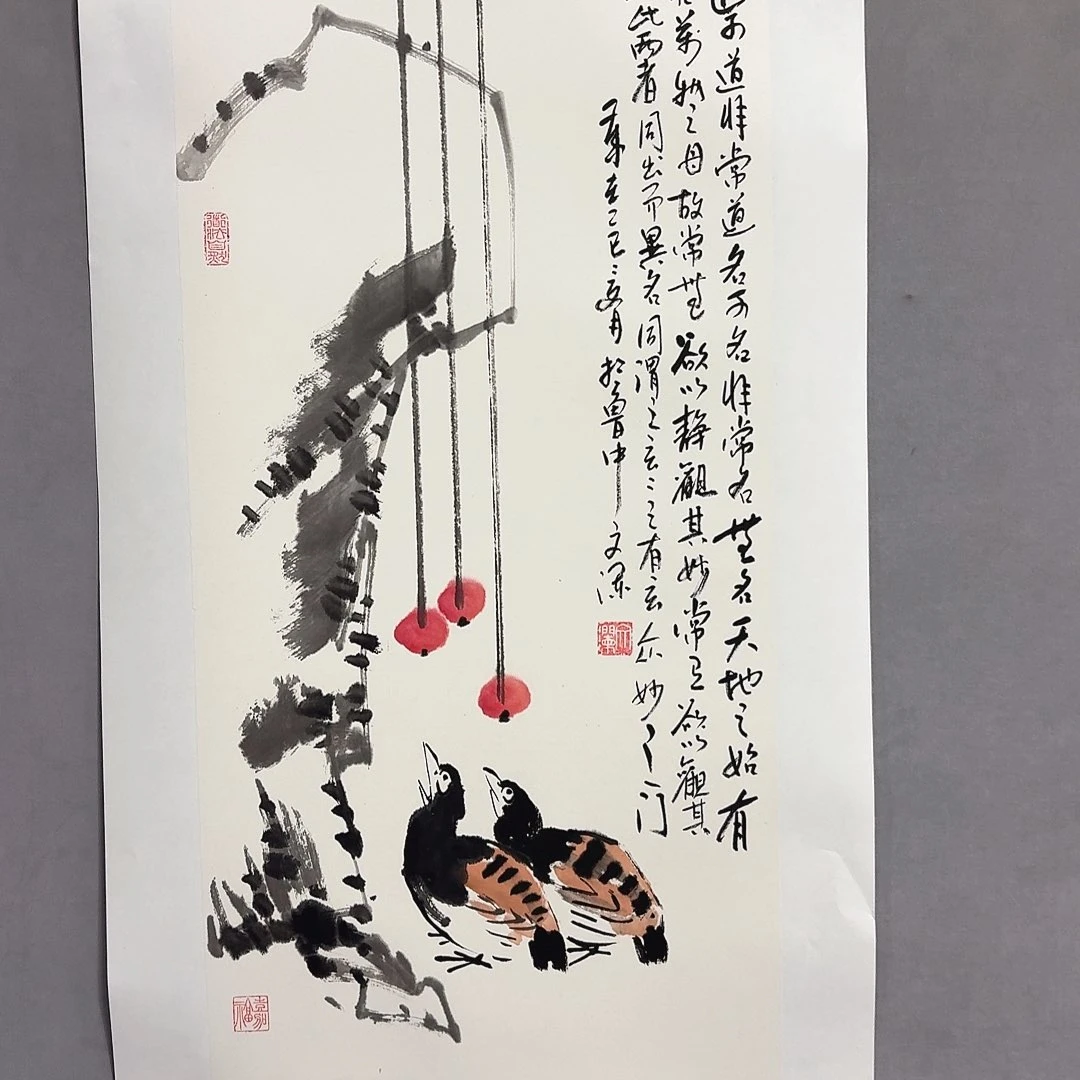 可道非常道名可名非常名無名天地之始有
名萬物之母故常無欲以靜觀其妙常有欲以觀其
此兩者同出而異名同謂之玄之有玄众妙之门
在乙巳夏月於魯中文
道法自然